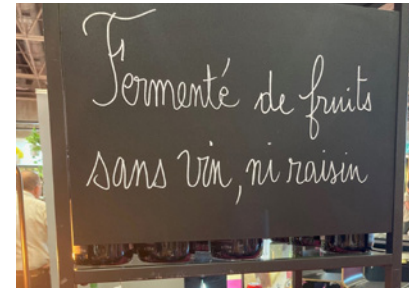 Fermenté de fruits
sans vin, ni raisin